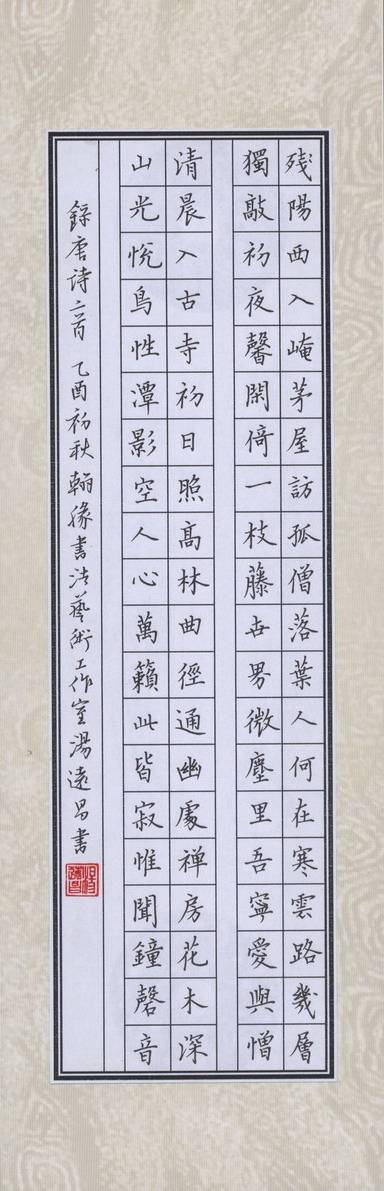 殘陽西入崦茅屋訪孤僧落葉人何在寒雲路幾層
獨敲初夜馨閑倚一枝藤世界微塵里吾寧愛與憎
清晨入古寺初日照高林曲徑通幽處禅房花木深
山光悅鳥性潭影空人心萬籟此皆寂惟聞鐘磬音
錄唐诗二首 乙酉初秋 翰缘書法藝術工作室湯遠昌書